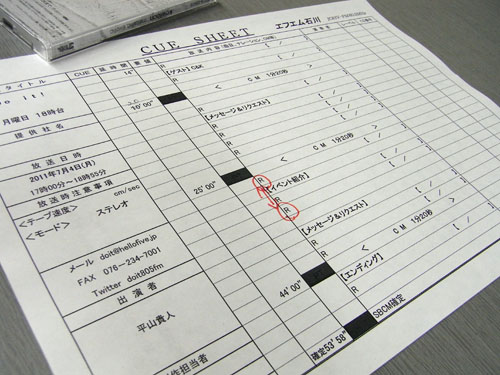 CUE SHEET エフエム石川
タイトル CUE 延時間 素場 放送内容
o it!
月曜日 18時台
提供社名
放送日時
2011年7月4日(月)
17時00分〜18時55分
放送時注意事項
<テープ速度> cm/sec
<モード> ステレオ
メール doit@hellofive.jp
FAX 076-234-7001
Twitter doit805fm
出演者
平山貴人
作担当者
14"
R【ゲスト】C&K
R
R
< CM 1分20秒 >
10'00"
【メッセージ&リクエスト】
R
R
R
R
< CM 1分20秒 >
25'00"
R
【イベント紹介】
R
R
R
【メッセージ&リクエスト】
R
R
< CM 1分20秒 >
44'00"
【エンディング】
R
R
確定53'58"
SBCM確定